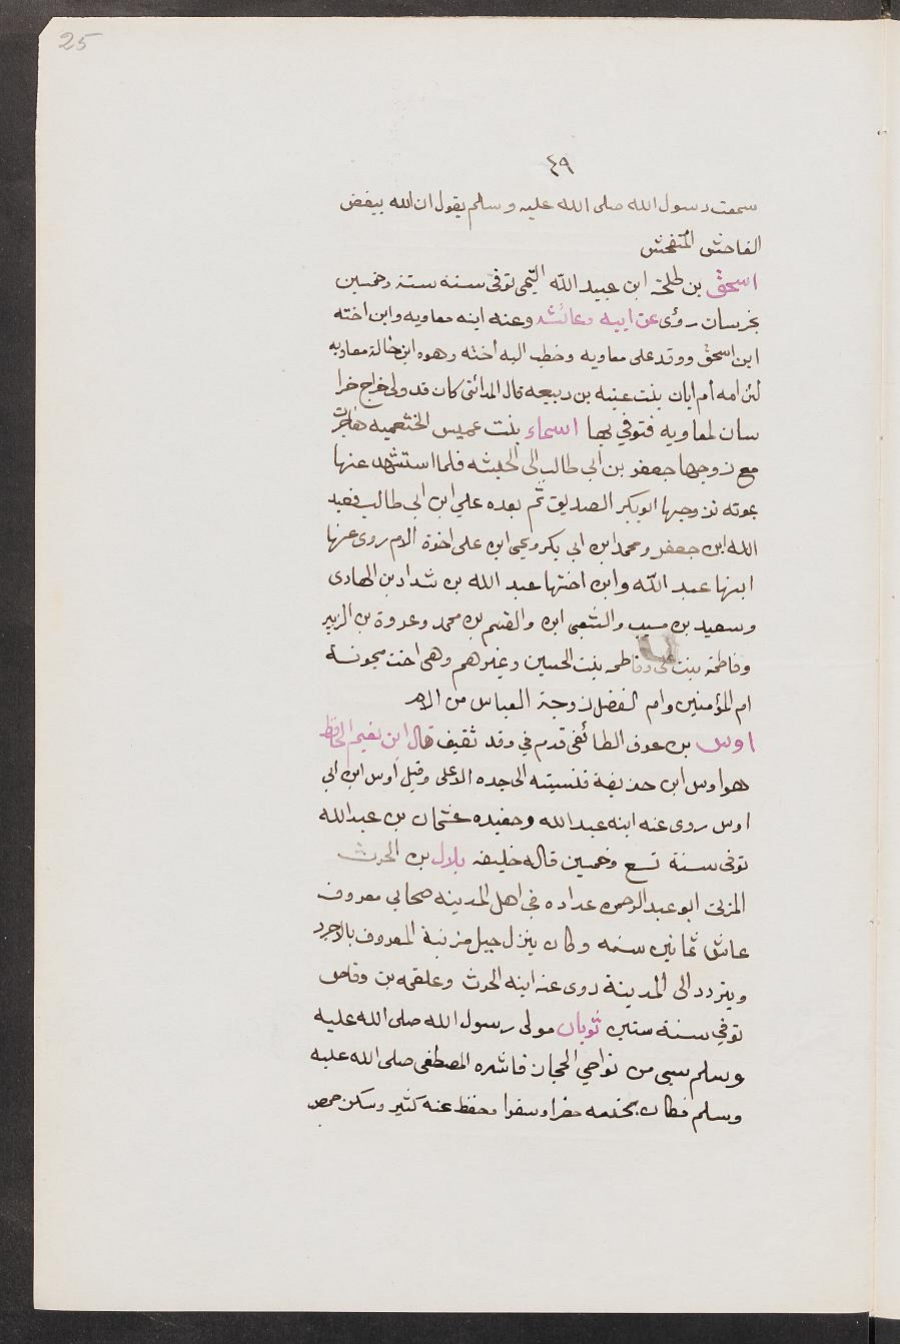 25
٤٩
سمعت رسول الله صلى الله عليه وسلم يقول ان الله يبغض
الفاحش المتفحش
اسحق بن طلحة ابن عبيد الله التيمى توفى سنة ستة وخمسين
بخرسان روى عن ابيه وعائشه وعنه ابنه معاويه وابن اخته
ابن اسحق ووفد على معاويه وخطب اليه اخته وهو ابن خالة معاويه
لئن امه أم ابان بنت عتبه بن ربيعه قال المدائنى كان قد ولى خراج خرا
سان لمعاويه فتوفي بها اسماء بنت عميس الخثعميه هاجرت
مع زوجها جعفر بن ابى طالب الى الحبشه فلما استشهد عنها
بموته تزوجها ابو بكر الصديق ثم بعده على ابن ابى طالب فعبد
الله ابن جعفر ومحمد ابن ابى بكر ويحى ابن على اخوة الام روى عنها
ابنها عبد الله وابن اختها عبد الله بن شداد بن الهادى
وسعيد بن مسيب والشعبى ابن والقسم بن محمد وعروة بن الزبير
وفاطمة بنت على وفاطمه بنت الحسين وغيرهم وهى اخت ميمونة
ام المؤمنين وام الفضل زوجة العباس من الام
اوس بن عوف الطائفى قدم في وفد ثقيف قال ابن نعيم الحافظ
هو اوس ابن حذيفة فنسبته الى جده الاعلى وقيل اوس ابن ابى
اوس روى عنه ابنه عبد الله وحفيده عثمان بن عبد الله
توفى سنة تسع وخمسين قاله خليفه بلال بن الحرث
المزنى ابو عبد الرحمن عداده فى اهل المدينه صحابى معروف
عاش ثمانين سنه وكان ينزل جبل مزينة المعروف بالاجرد
ويتردد الى المدينة روى عنه ابنه الحرث وعلقمه بن وقاص
توفي سنة ستين ثوبان مولى رسول الله صلى الله عليه
وسلم سبى من نواحي الحجاز فاشره المصطفى صلى الله عليه
وسلم فكان يخدمه حضرا وسفرا وحفظ عنه كثير وسكن حمص